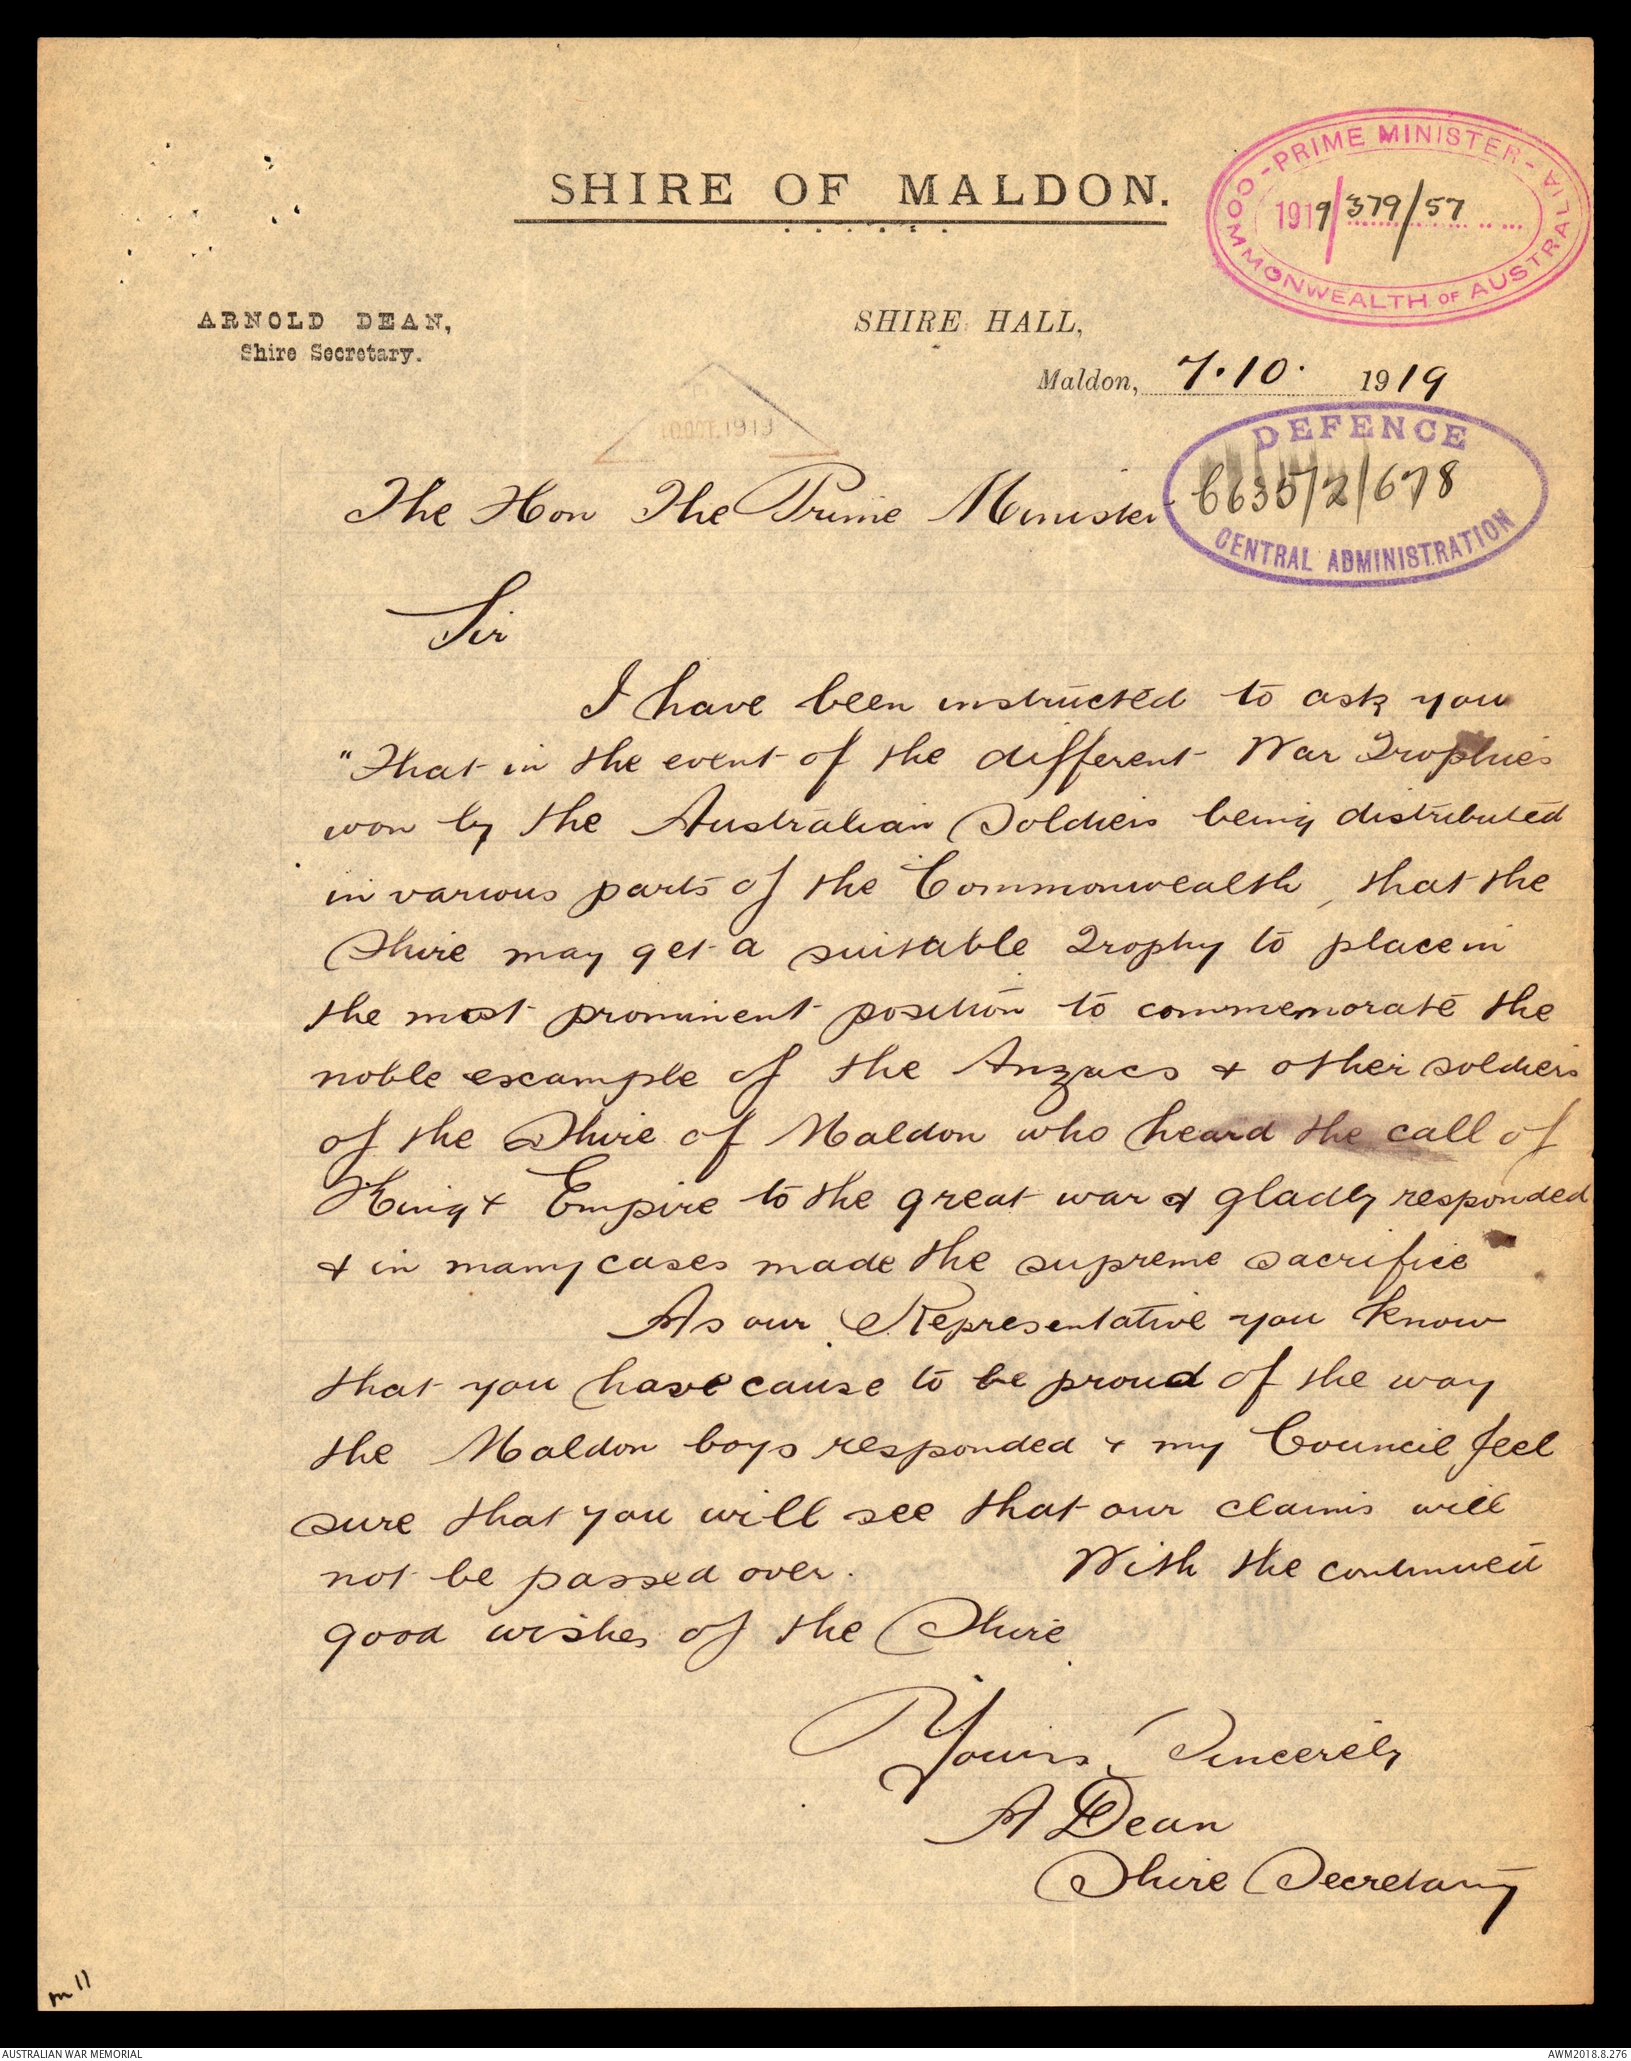 SHIRE OF MALDON.
PRIME MINISTER
1919/379/57
COMMONWEALTH OF AUSTRALIA
ARNOLD DEAN,
Shire Secretary.
SHIRE HALL,
Maldon, 7.10. 1919
10 OCT. 1919
DEFENCE
6635/2/678
CENTRAL ADMINISTRATION
The Hon The Prime Minister
Sir
I have been instructed to ask you
"That in the event of the different War Trophies
won by the Australian Soldiers being distributed
in various parts of the Commonwealth, that the
Shire may get a suitable Trophy to place in
the most prominent position to commemorate the
noble example of the Anzacs & other soldiers
of the Shire of Maldon who heard the call of
King & Empire to the great war & gladly responded
& in many cases made the supreme sacrifice
As our Representative you know
that you have cause to be proud of the way
the Maldon boys responded & my Council feel
sure that you will see that our claims will
not be passed over. With the continued
good wishes of the Shire
Yours Sincerely
A Dean
Shire Secretary
m 11
AUSTRALIAN WAR MEMORIAL
AWM2018.8.276